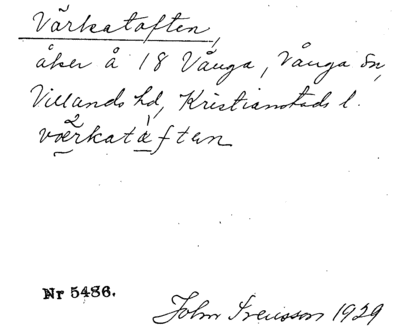 Värkatoften,
åker å 18 Vånga, Vånga sn,
Villands hd, Kristianstads l.
væ̰²rkatà̲ften
Nr 5486.
John Svensson 1929